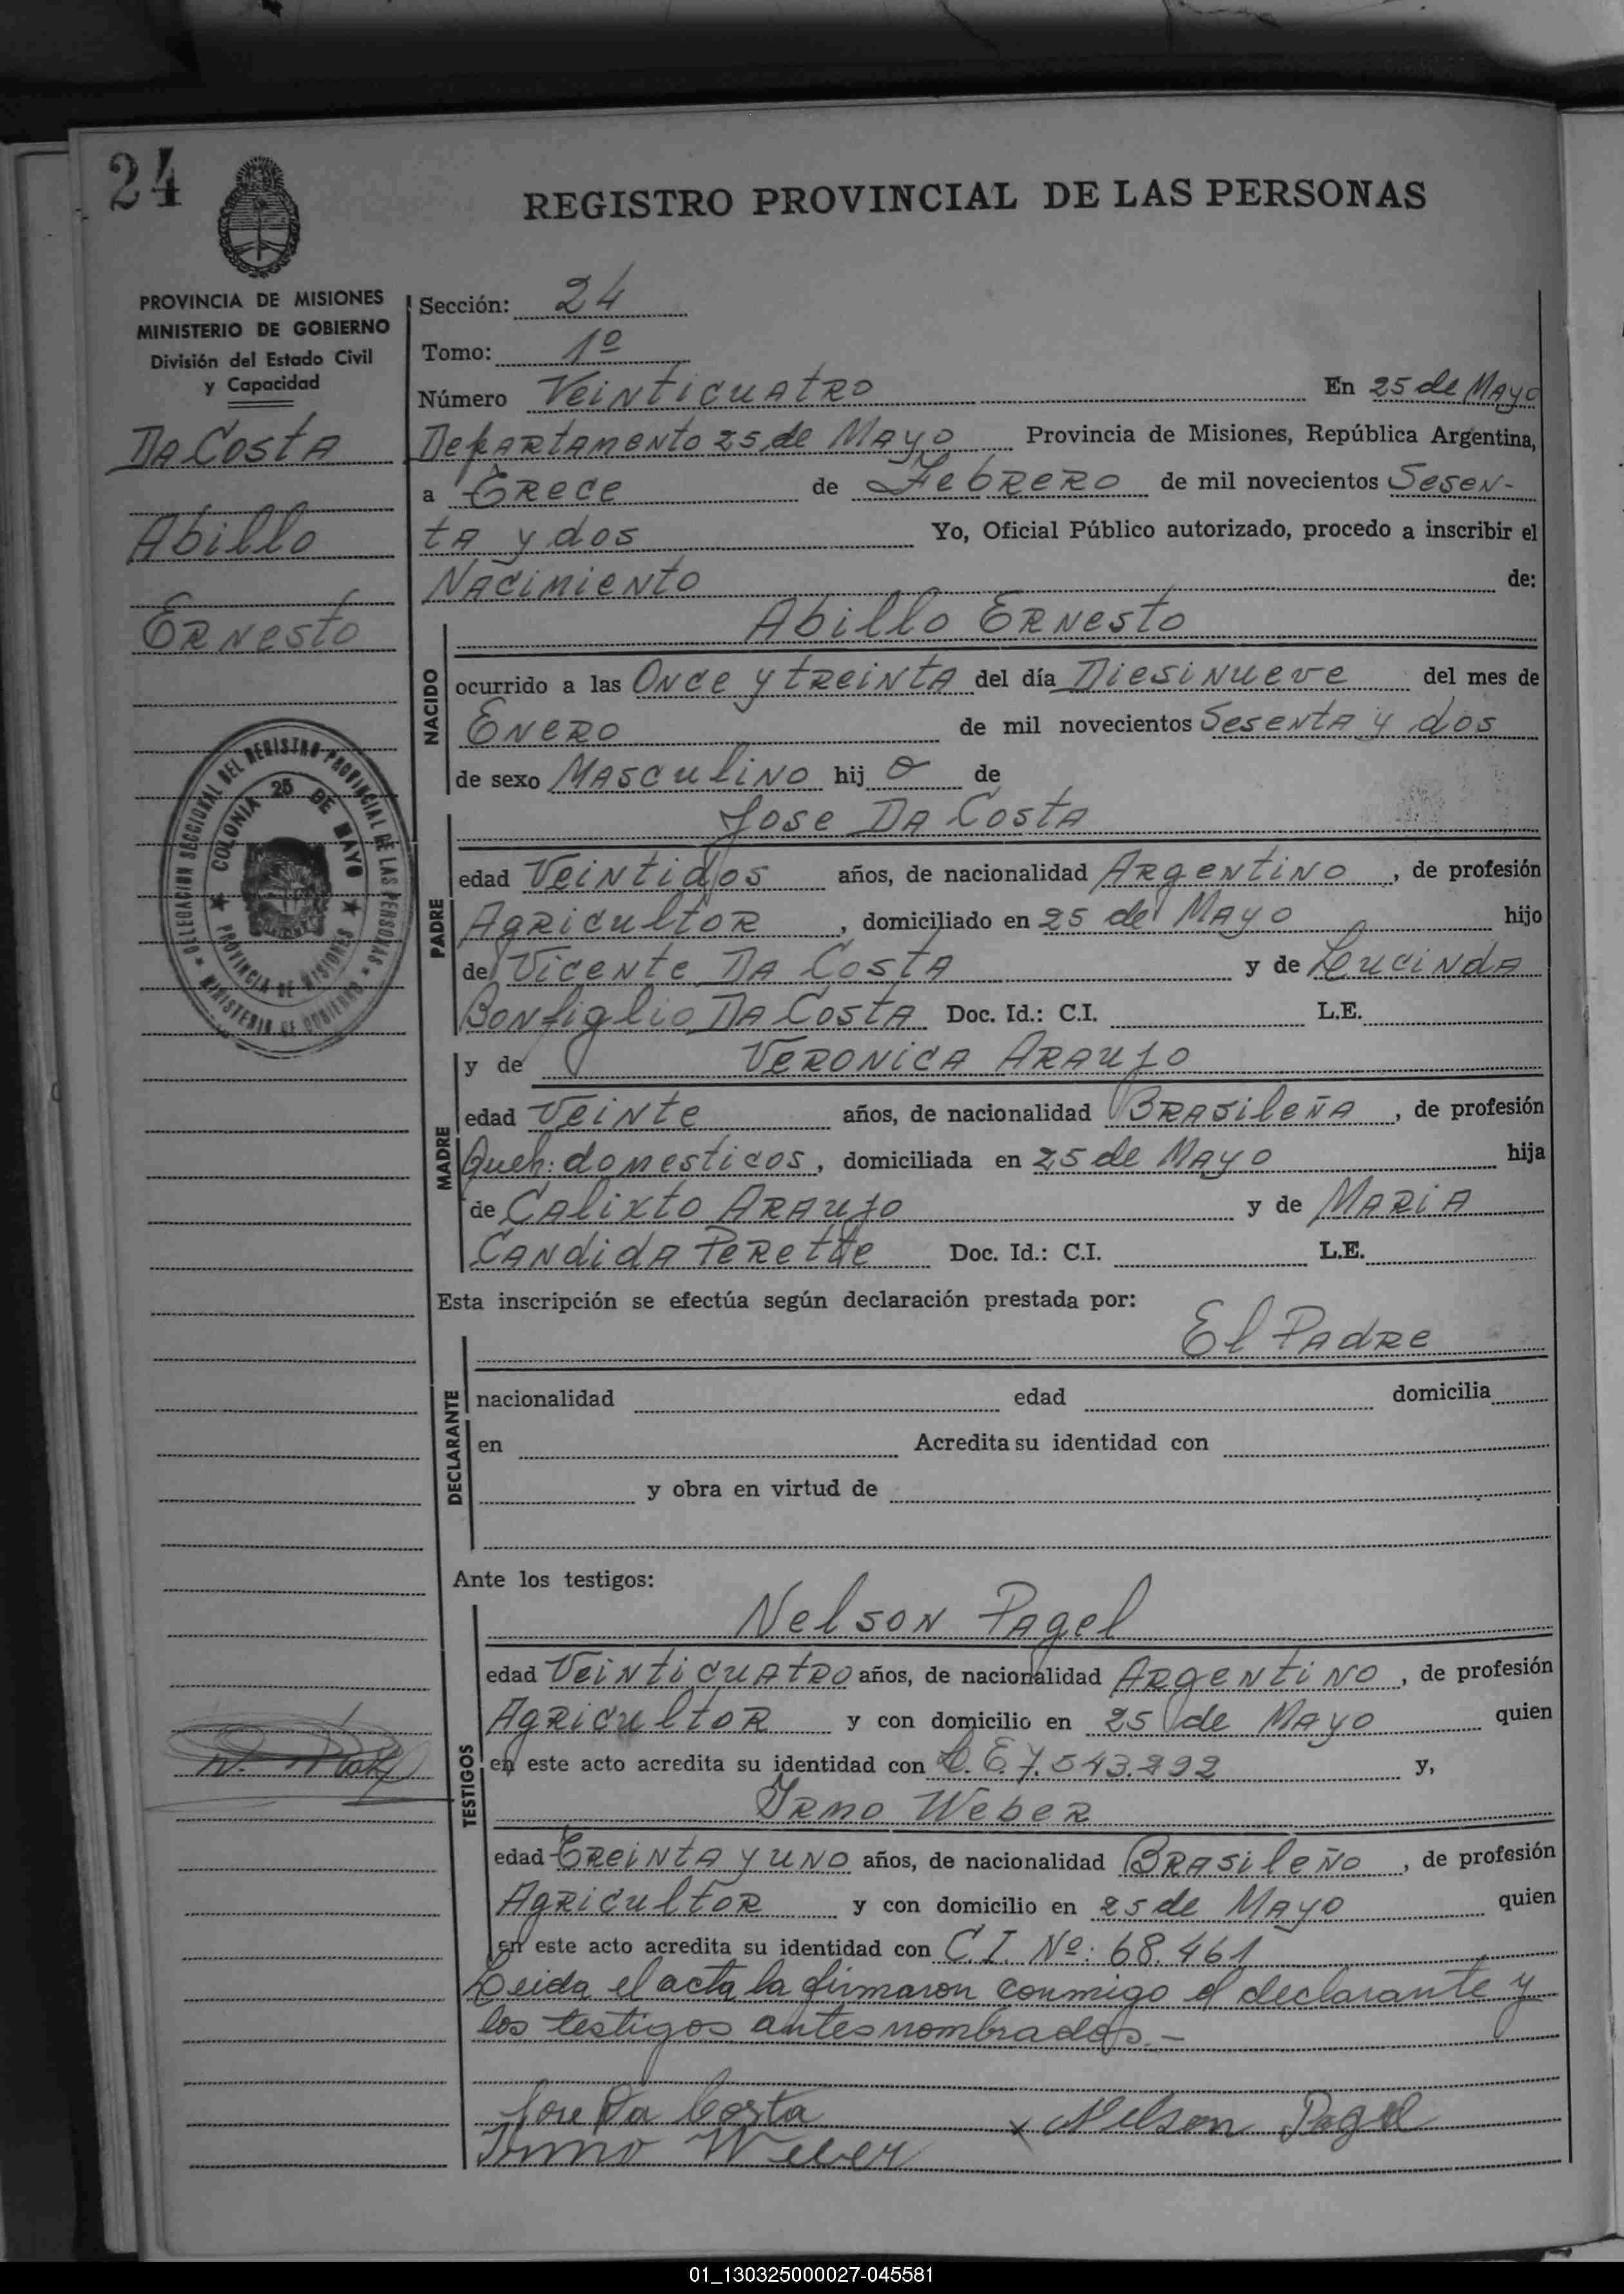 24
REGISTRO PROVINCIAL DE LAS PERSONAS
PROVINCIA DE MISIONES
MINISTERIO DE GOBIERNO
División del Estado Civil
y Capacidad
Da Costa
Abillo
Ernesto
DELEGACION SECCIONAL DEL REGISTRO PROVINCIAL DE LAS PERSONAS
MINISTERIO DE GOBIERNO
COLONIA 25 DE MAYO
PROVINCIA DE MISIONES
Sección: 24
Tomo: 1º
Número Veinticuatro En 25 de Mayo
Departamento 25 de Mayo Provincia de Misiones, República Argentina,
a Trece de Febrero de mil novecientos Sesen-
ta y dos Yo, Oficial Público autorizado, procedo a inscribir el
Nacimiento de:
Abillo Ernesto
NACIDO
ocurrido a las Once y treinta del día Diesinueve del mes de
Enero de mil novecientos Sesenta y dos
de sexo Masculino hij o de
Jose Da Costa
PADRE
edad Veintidos años, de nacionalidad Argentino, de profesión
Agricultor, domiciliado en 25 de Mayo hijo
de Vicente Da Costa y de Lucinda
Bonfiglio Da Costa Doc. Id.: C.I. L.E.
y de Veronica Araujo
MADRE
edad Veinte años, de nacionalidad Brasileña, de profesión
Queh: domesticos, domiciliada en 25 de Mayo hija
de Calixto Araujo y de Maria
Candida Perette Doc. Id.: C.I. L.E.
Esta inscripción se efectúa según declaración prestada por:
El Padre
DECLARANTE
nacionalidad edad domicilia
en Acredita su identidad con
y obra en virtud de
Ante los testigos:
Nelson Pagel
TESTIGOS
edad Veinticuatro años, de nacionalidad Argentino, de profesión
Agricultor y con domicilio en 25 de Mayo quien
en este acto acredita su identidad con L.E. 7.543.292 y,
Irmo Weber
edad Treinta y uno años, de nacionalidad Brasileño, de profesión
Agricultor y con domicilio en 25 de Mayo quien
en este acto acredita su identidad con C.I. Nº: 68.461
Leida el acta la firmaron conmigo el declarante y
los testigos antes nombrados.-
Jose Da Costa x Nelson Pagel
Irmo Weber
01_130325000027-045581